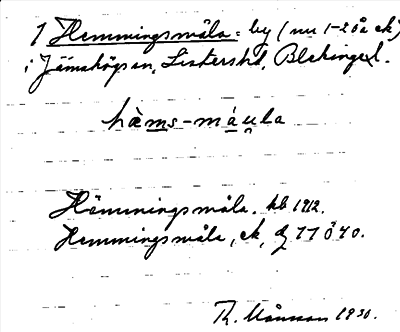 1 Hemmingsmåla - by (nu 1-2 öa ek)
i Jämshögs sn, Listers hd, Blekinge l.
hæms-máula
Hämmingsmåla. kb 1912.
Hemmingsmåla, ek,
Th. Månsson 1930.